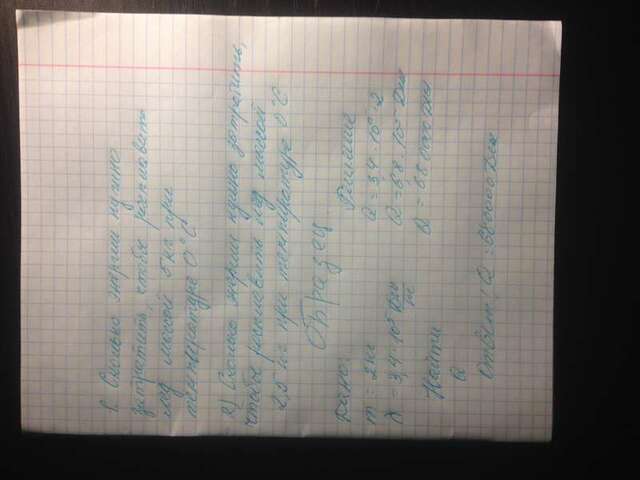 1. Сколько энергии нужно
затратить, чтобы расплавить
лёд массой 5 кг при
температуре 0°С
2) Сколько энергии нужно затратить,
чтобы расплавить лёд массой
2,5 кг при температуре 0°С
Образец
Дано: Решение
m = 2кг Q = 3,4 · 10⁵ · 2
λ = 3,4 · 10⁵ Дж/кг Q = 6,8 · 10⁵ Дж
Найти Q = 68 0000 Дж
Q
Ответ: Q = 680000 Дж